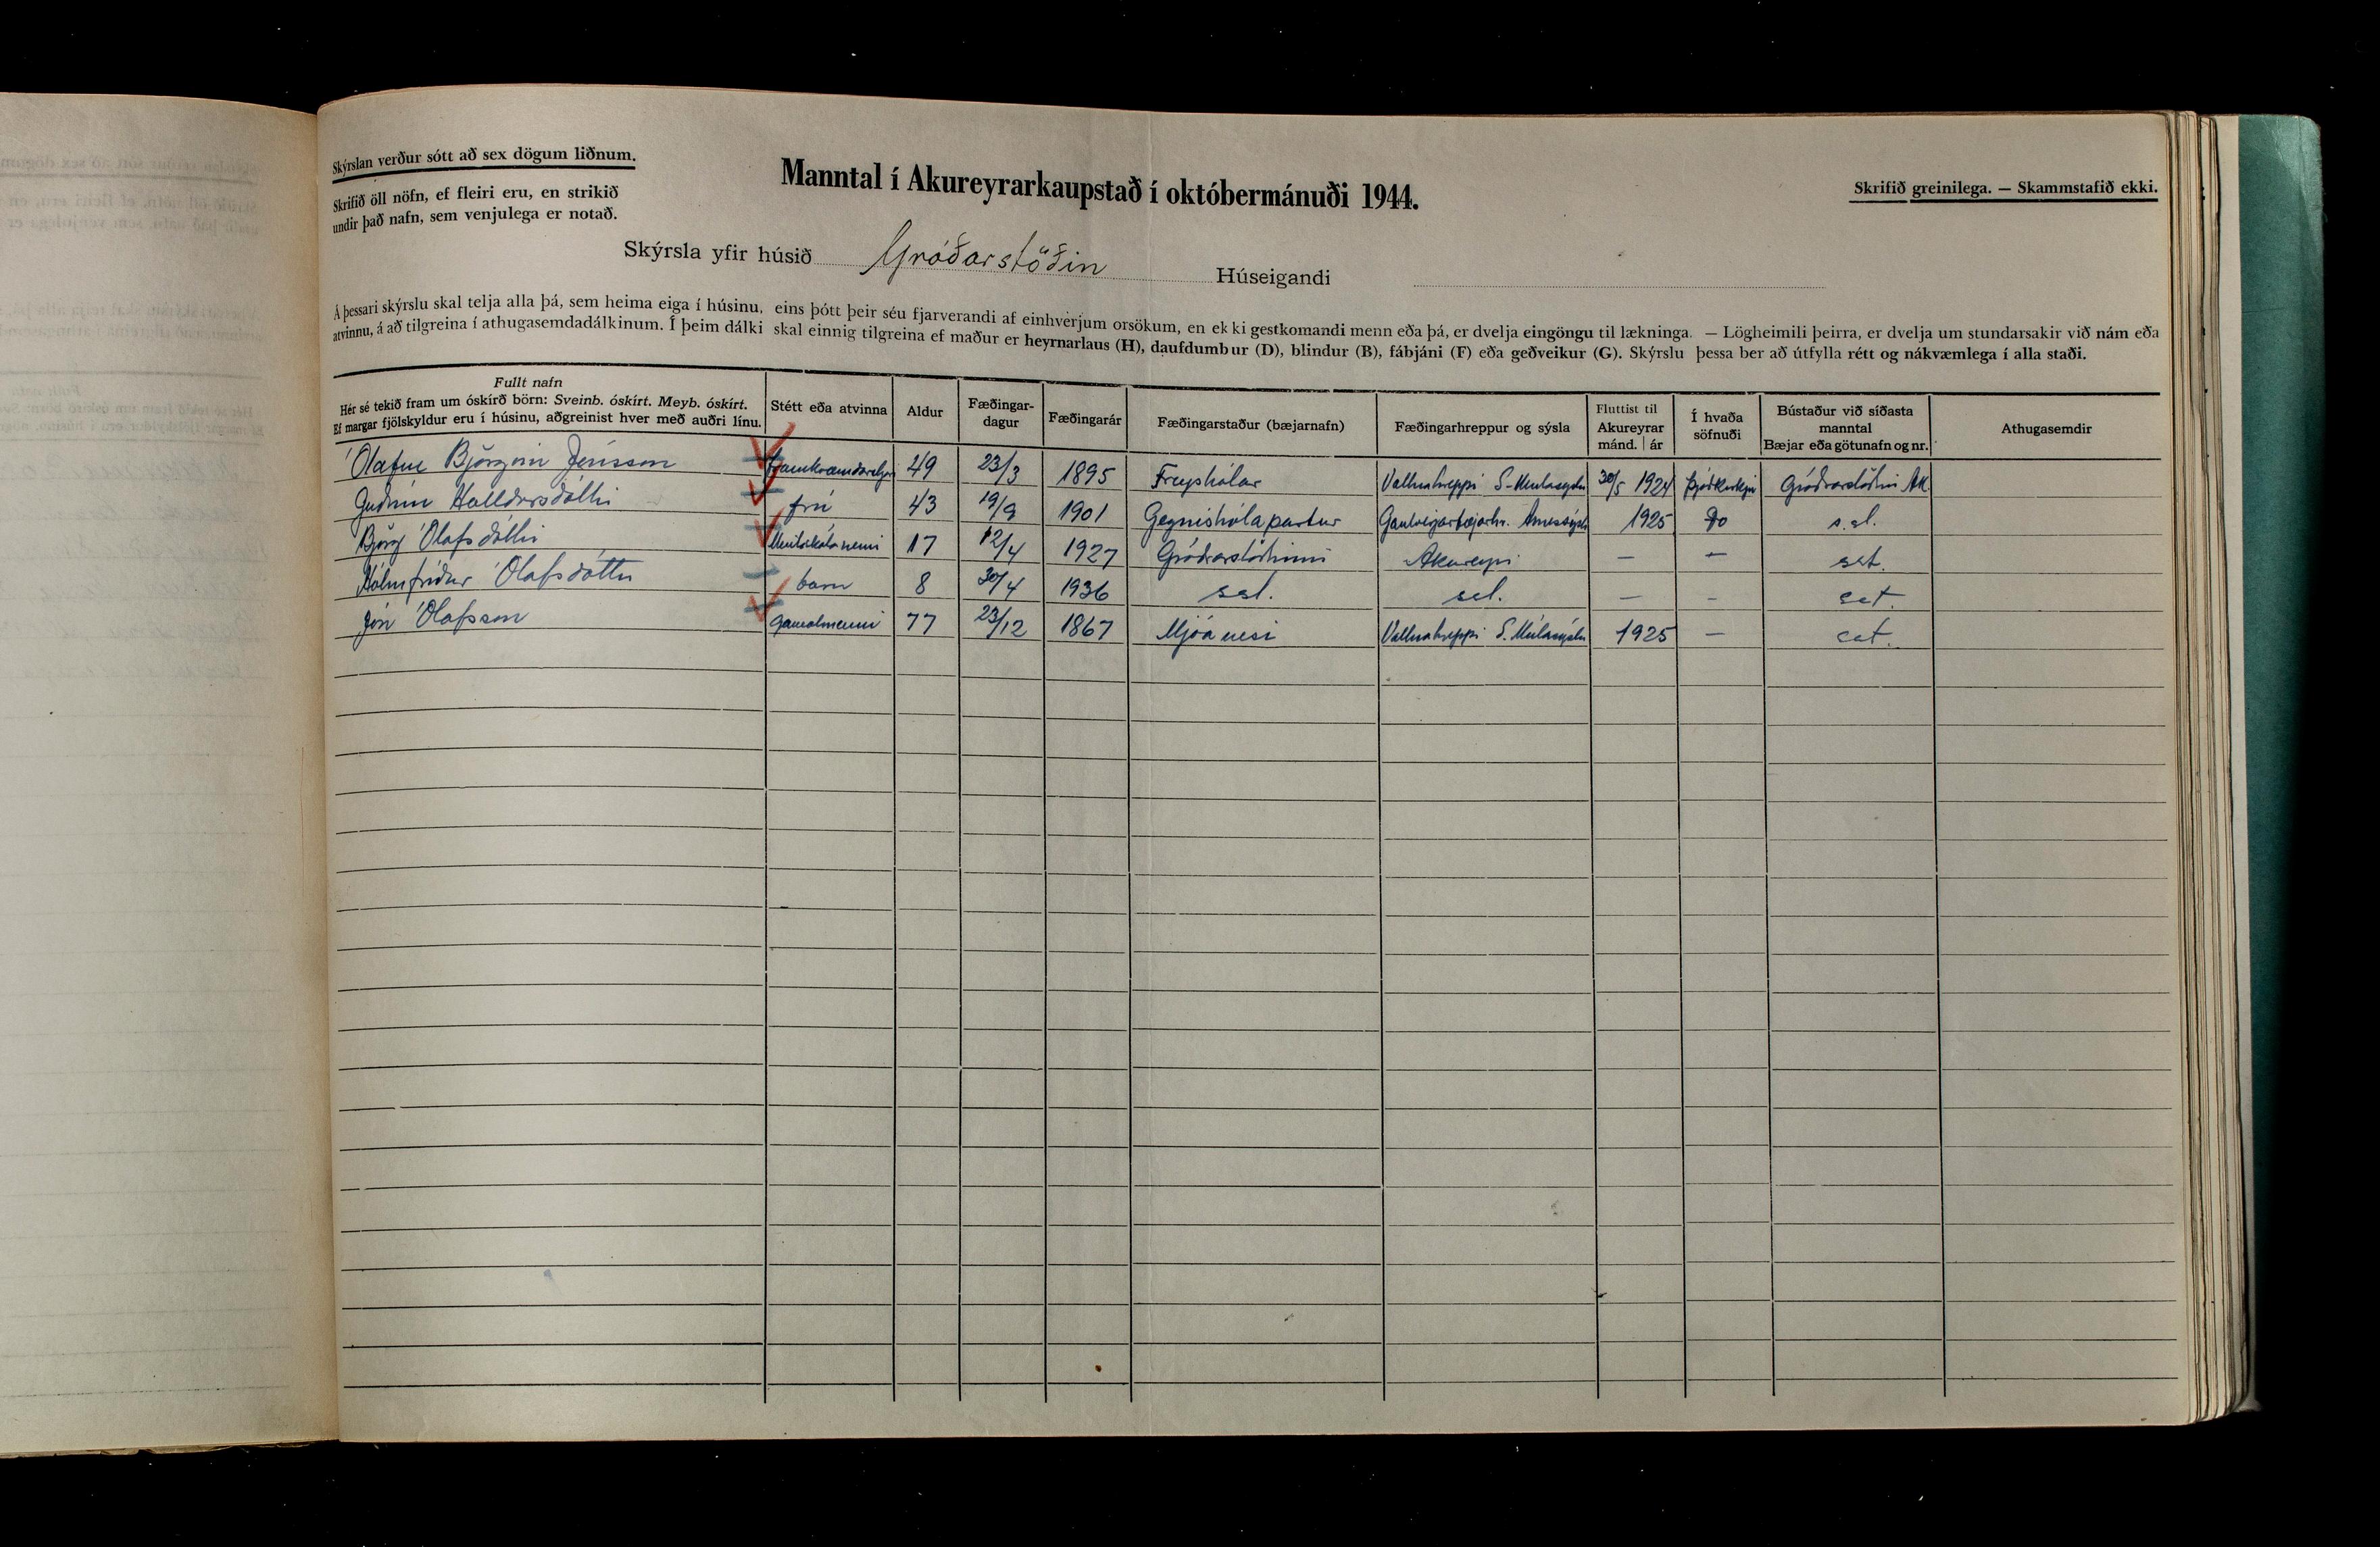 Skýrslan verður sótt að sex dögum liðnum.
Skrifið öll nöfn, ef fleiri eru, en strikið
undir það nafn, sem venjulega er notað.
Manntal í Akureyrarkaupstað í októbermánuði 1944.
Skrifið greinilega. — Skammstafið ekki.
Skýrsla yfir húsið Gróðarstöðin Húseigandi
Á þessari skýrslu skal telja alla þá, sem heima eiga í húsinu, eins þótt þeir séu fjarverandi af einhverjum orsökum, en ekki gestkomandi menn eða þá, er dvelja eingöngu til lækninga. — Lögheimili þeirra, er dvelja um stundarsakir við nám eða
atvinnu, á að tilgreina í athugasemdadálkinum. Í þeim dálki skal einnig tilgreina ef maður er heyrnarlaus (H), daufdumbur (D), blindur (B), fábjáni (F) eða geðveikur (G). Skýrslu þessa ber að útfylla rétt og nákvæmlega í alla staði.
Fullt nafn
Hér sé tekið fram um óskírð börn: Sveinb. óskírt. Meyb. óskírt.
Ef margar fjölskyldur eru í húsinu, aðgreinist hver með auðri línu.
Stétt eða atvinna
Aldur
Fæðingar-
dagur
Fæðingarár
Fæðingarstaður (bæjarnafn)
Fæðingarhreppur og sýsla
Fluttist til
Akureyrar
mánd. | ár
Í hvaða
söfnuði
Bústaður við síðasta
manntal
Bæjar eða götunafn og nr.
Athugasemdir
Ólafur Björgvin Jónsson 49 23/3 1895 Freyshólar Vallnahreppi S-Múlasýslu 30/5 1924 Þjóðkirkju Gróðrarstöðin Ak
Guðrún Halldórsdóttir frú 43 19/9 1901 Gegnishólapartur Gaulverjarbæjarhr. Árnessýslu 1925 Do s.st.
Björg Ólafsdóttir Menntskólanemi 17 12/4 1927 Gróðrarstöðinni Akureyri — — sst.
Hólmfríður Ólafsdóttir barn 8 30/4 1936 sst. sst. — — sst.
Jón Ólafsson gamalmenni 77 23/12 1867 Mjóanesi Vallnahreppi S. Múlasýslu 1925 — sst.